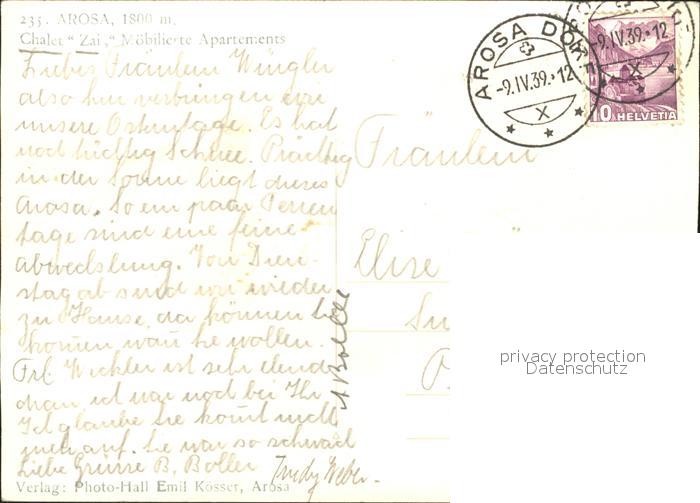 235. AROSA, 1800 m.
Chalet "Zai," Möblierte Apartements
Liebes Fräulein Wüngler
also hier verbringen wir
unsere Ostertage. Es hat
noch tüchtig Schnee. Prächtig
in der Sonne liegt dieses
Arosa. So ein paar Ferien
tage sind eine feine
abwechslung. Von Dien-
stag ab sind wir wieder
zu Hause, da können Sie
komen wan Sie wollen.
Frl. ist sehr elend
dran, ich war noch bei Ihr
Ich glaube Sie komt nicht
mehr auf. Sie war so schwach
Liebe Grüsse B. Boller
Trudy Weber.
A Boller
Verlag: Photo-Hall Emil Kosser, Arosa
AROSA DORF
-9.IV.39.-12
X
-9.IV.39.-12
X
10 HELVETIA
Fräulein
Elise
privacy protection
Datenschutz